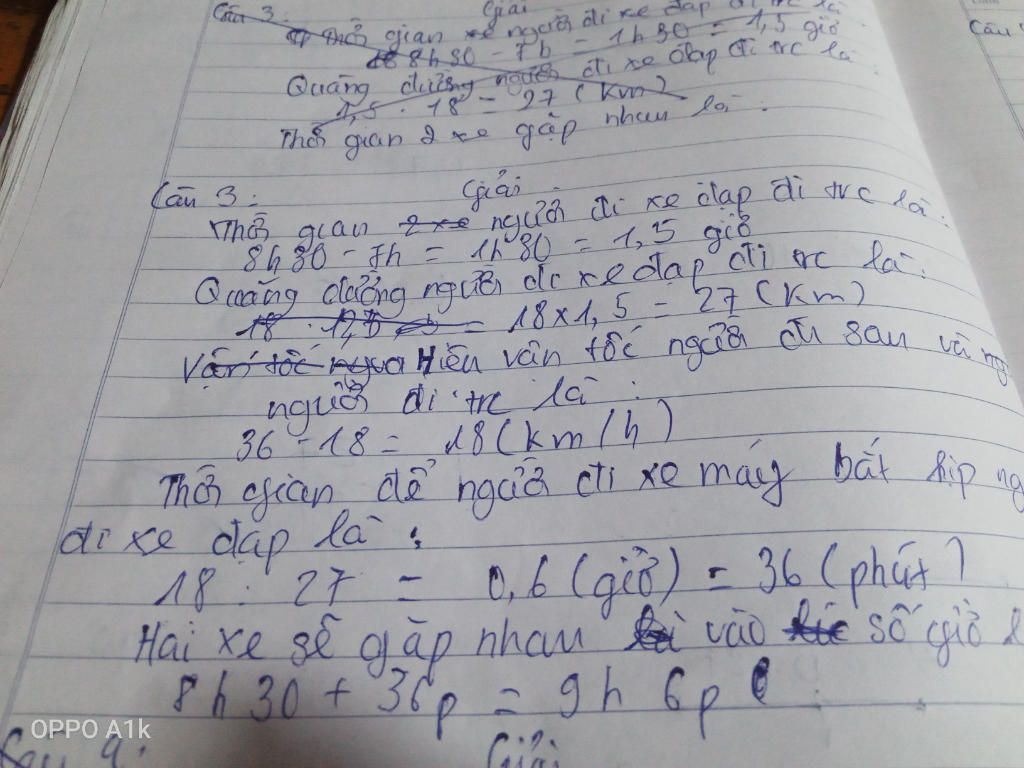 Câu 3: Giải
Thời gian xe người đi xe đạp đi trc là
8h30 - 7h = 1h30 = 1,5 giờ
Quãng đường người đi xe đạp đi trc là:
1,5 . 18 = 27 (km)
Thời gian 2 xe gặp nhau là:
Câu 3: Giải
Thời gian 2 xe người đi xe đạp đi trc là:
8h30 - 7h = 1h30 = 1,5 giờ
Quãng đường người đi xe đạp đi trc là:
= 18 x 1,5 = 27 (km)
Vận tốc Hiệu vân tốc người đi sau và
người đi trc là:
36 - 18 = 18 (km/h)
Thời gian để người đi xe máy bắt kịp
đi xe đạp là:
18 : 27 = 0,6 (giờ) = 36 (phút)
Hai xe sẽ gặp nhau vào số giờ
8h30 + 36p = 9h 6p
OPPO A1k
Giải